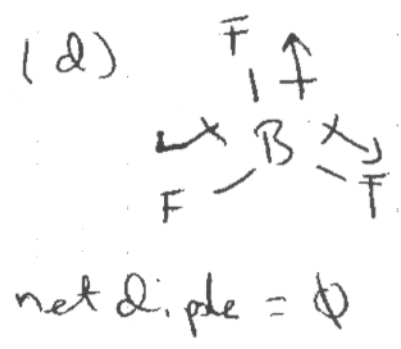 (d)
F
B
F F
net diple = 0